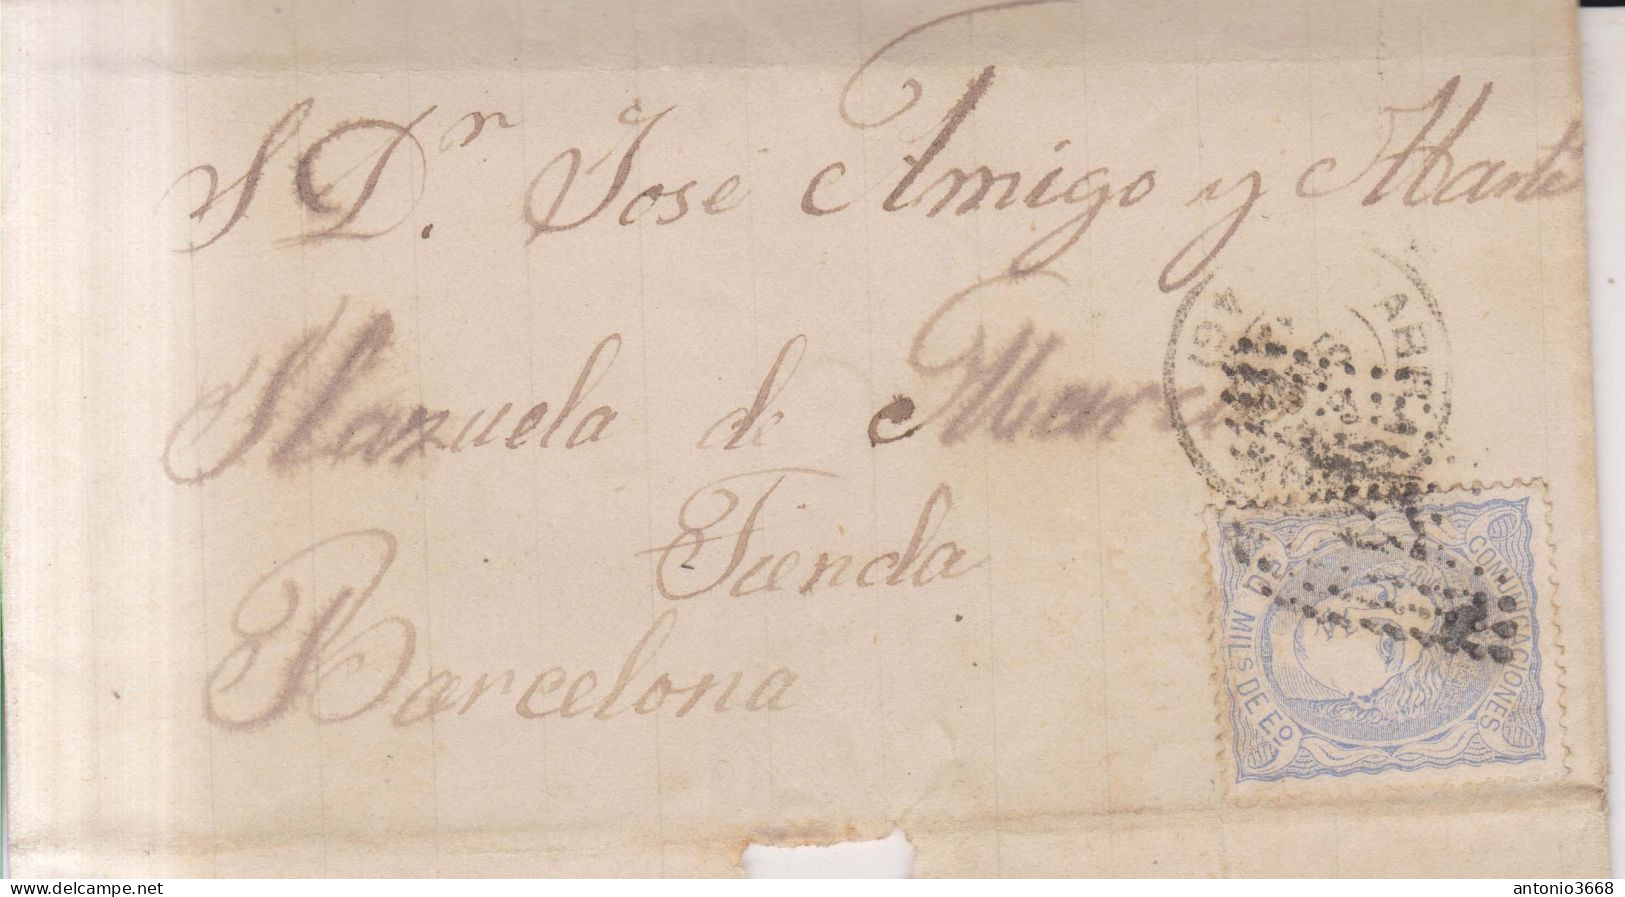 S Dr. Jose Amigo y Marti
Plazuela de Marcus
Tienda
Barcelona
COMUNICACIONES
50 MILS DE Eº
delcampe.net
antonio3668